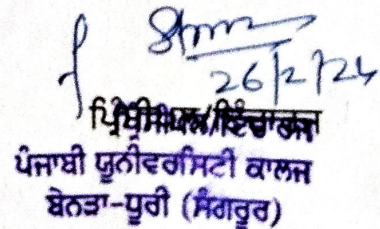 26/2/24
ਪ੍ਰਿੰਸੀਪਲ/ਇੰਚਾਰਜ
ਪੰਜਾਬੀ ਯੂਨੀਵਰਸਿਟੀ ਕਾਲਜ
ਬੇਨੜਾ-ਧੂਰੀ (ਸੰਗਰੂਰ)